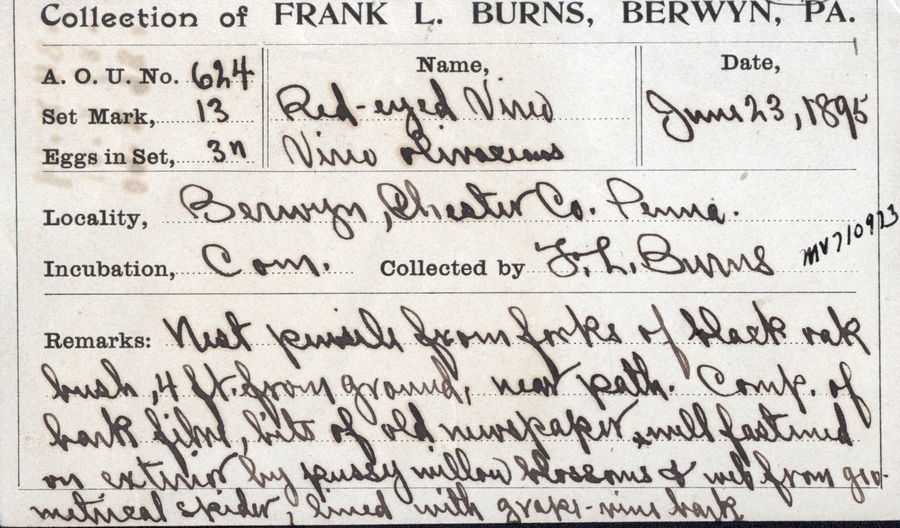 Collection of FRANK L. BURNS, BERWYN, PA.
A. O. U. No. 624
Name,
Date,
Set Mark, 13
Red-eyed Vireo
June 23, 1895
Eggs in Set, 3n
Vireo olivaceous
Locality, Berwyn, Chester Co. Penna.
Incubation, Com. Collected by F. L. Burns
Remarks: Nest pensile from forks of black oak
bush, 4 ft. from ground, near path. Comp. of
bark fibre, bits of old newspaper, well fastened
on exterior by pussy willow blossoms & web from geo-
metrical spider, lined with grape-vine bark